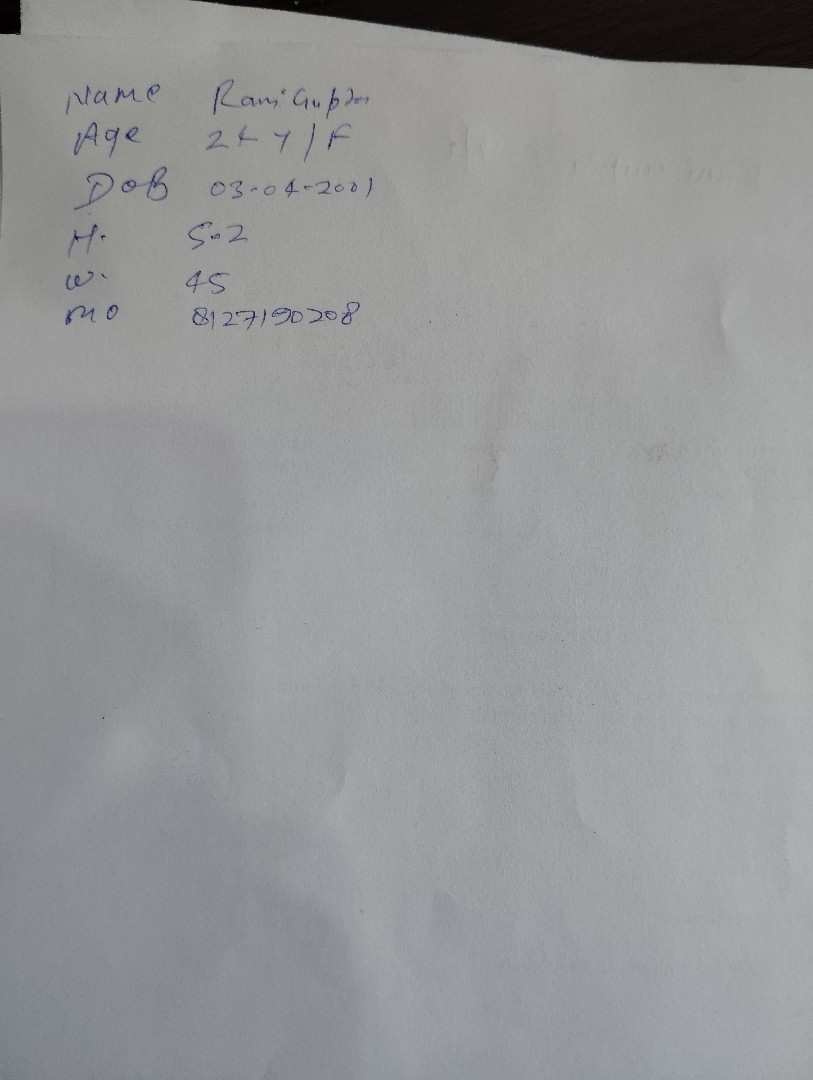 Name Rani Gupta
Age 24 Y/F
DOB 03-04-2001
H. 5.2
W. 45
Mo 8127190208